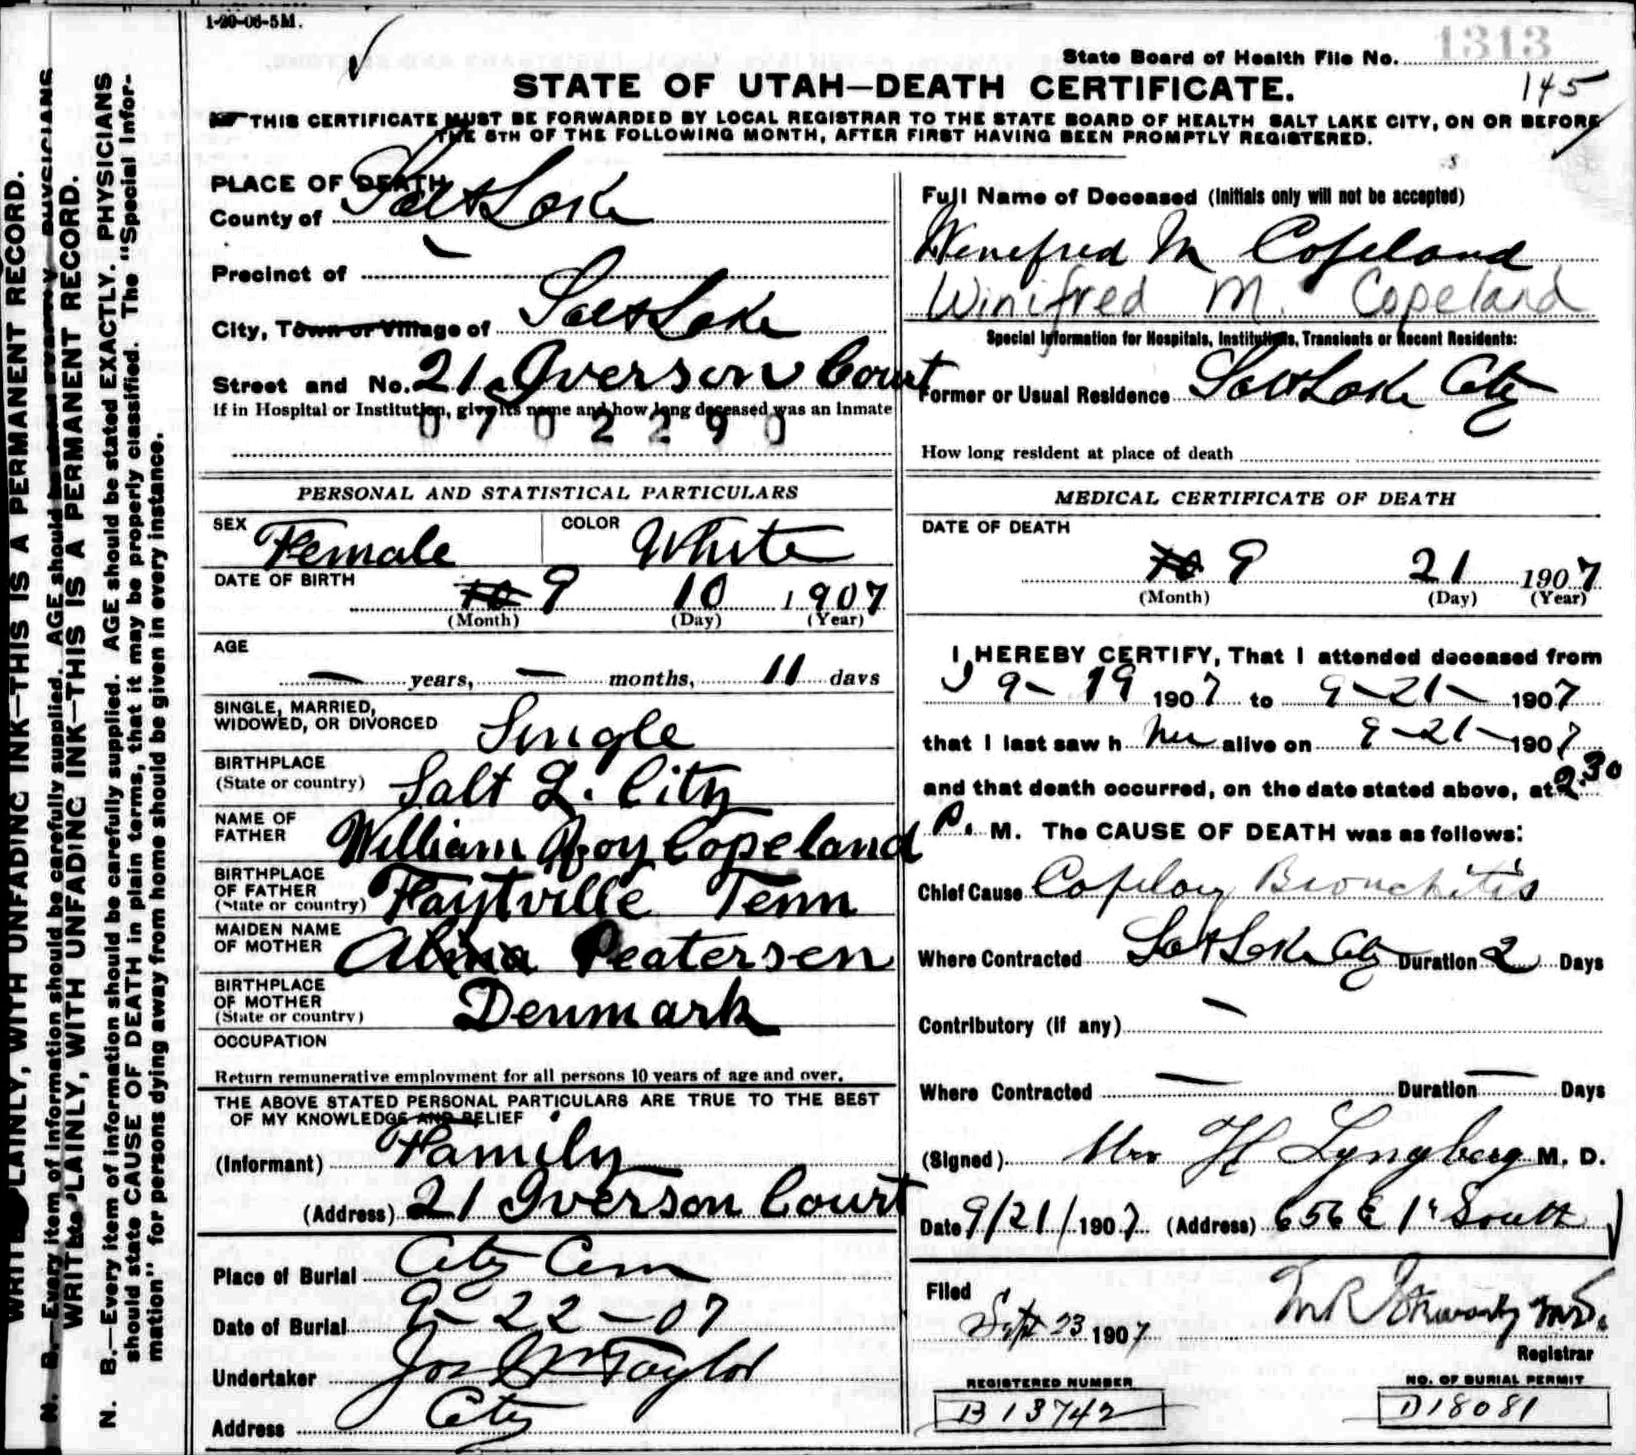 1-20-06-5M.
1313
State Board of Health File No.
145
STATE OF UTAH—DEATH CERTIFICATE.
THIS CERTIFICATE MUST BE FORWARDED BY LOCAL REGISTRAR TO THE STATE BOARD OF HEALTH SALT LAKE CITY, ON OR BEFORE
THE 5TH OF THE FOLLOWING MONTH, AFTER FIRST HAVING BEEN PROMPTLY REGISTERED.
WRITE PLAINLY, WITH UNFADING INK—THIS IS A PERMANENT RECORD.
N. B.—Every item of information should be carefully supplied. AGE should be stated EXACTLY. PHYSICIANS
should state CAUSE OF DEATH in plain terms, that it may be properly classified. The "Special Infor-
mation" for persons dying away from home should be given in every instance.
PLACE OF DEATH
County of Salt Lake
Precinct of —
City, Town or Village of Salt Lake
Street and No. 21 Iverson Court
If in Hospital or Institution, give its name and how long deceased was an Inmate
0702290
Full Name of Deceased (Initials only will not be accepted)
Wenefred M Copeland
Winifred M. Copeland
Special Information for Hospitals, Institutions, Transients or Recent Residents:
Former or Usual Residence Salt Lake City
How long resident at place of death
PERSONAL AND STATISTICAL PARTICULARS
SEX Female COLOR White
DATE OF BIRTH 10 9 10 1907
(Month) (Day) (Year)
AGE
— years, — months, 11 days
SINGLE, MARRIED,
WIDOWED, OR DIVORCED Single
BIRTHPLACE
(State or country) Salt L. City
NAME OF
FATHER William Roy Copeland
BIRTHPLACE
OF FATHER
(State or country) Faytville Tenn
MAIDEN NAME
OF MOTHER Alma Peatersen
BIRTHPLACE
OF MOTHER
(State or country) Denmark
OCCUPATION
Return remunerative employment for all persons 10 years of age and over.
THE ABOVE STATED PERSONAL PARTICULARS ARE TRUE TO THE BEST
OF MY KNOWLEDGE AND BELIEF
(Informant) Family
(Address) 21 Iverson Court
Place of Burial City Cem
Date of Burial 9-22-07
Undertaker Jos Wm Taylor
Address City
MEDICAL CERTIFICATE OF DEATH
DATE OF DEATH
10 9 21 1907
(Month) (Day) (Year)
I HEREBY CERTIFY, That I attended deceased from
9-19 1907 to 9-21- 1907
that I last saw h her alive on 9-21- 1907
and that death occurred, on the date stated above, at 2.30
P. M. The CAUSE OF DEATH was as follows:
Chief Cause Bronchitis
Where Contracted Salt Lake City Duration 2 Days
Contributory (if any) —
Where Contracted — Duration — Days
(Signed) Mrs H Lyngberg M. D.
Date 9/21/1907 (Address) 656 E 1st South
Filed
Sept 23 1907 M.D.
Registrar
REGISTERED NUMBER
B13742
NO. OF BURIAL PERMIT
D18081